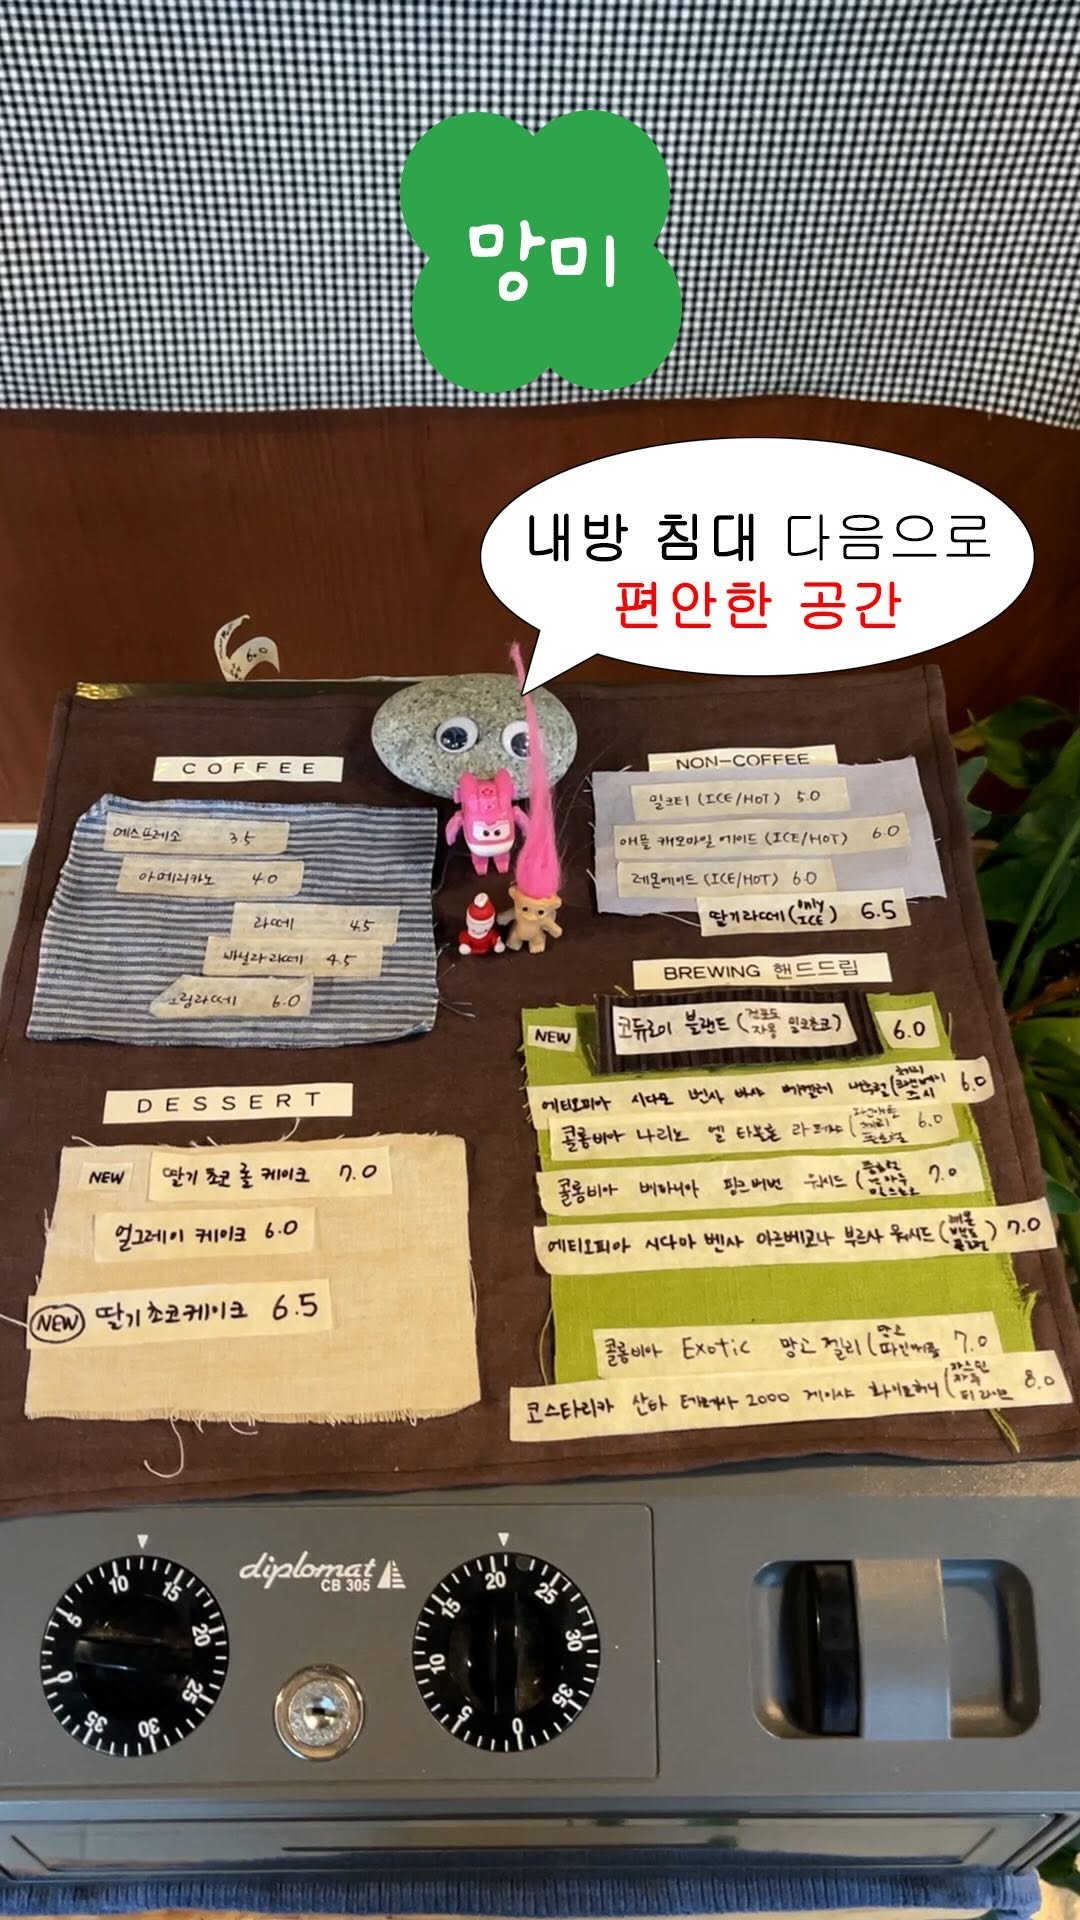 망미
내방 침대 다음으로
편안한 공간
6.0
COFFEE
에스프레소 3.5
아메리카노 4.0
라떼 4.5
바닐라 라떼 4.5
크림라떼 6.0
NON-COFFEE
밀크티 (ICE/HOT) 5.0
애플 캐모마일 에이드 (ICE/HOT) 6.0
레몬에이드 (ICE/HOT) 6.0
딸기라떼 (only ICE) 6.5
BREWING 핸드드립
NEW
코듀로이 블랜드 (건포도 자몽 밀크초코) 6.0
에티오피아 시다모 벤사 내추럴 6.0
콜롬비아 나리뇨 엘 타블론 6.0
콜롬비아 버번 워시드 7.0
에티오피아 시다마 벤사 부르사 워시드 7.0
콜롬비아 Exotic 망고 젤리 (망고 파인애플 7.0
코스타리카 산타 테레사 2000 게이샤 화이트허니 8.0
DESSERT
NEW 딸기 초코 롤 케이크 7.0
얼그레이 케이크 6.0
NEW 딸기 초코케이크 6.5
diplomat
CB 305
0 5 10 15 20 25 30 35
0 5 10 15 20 25 30 35